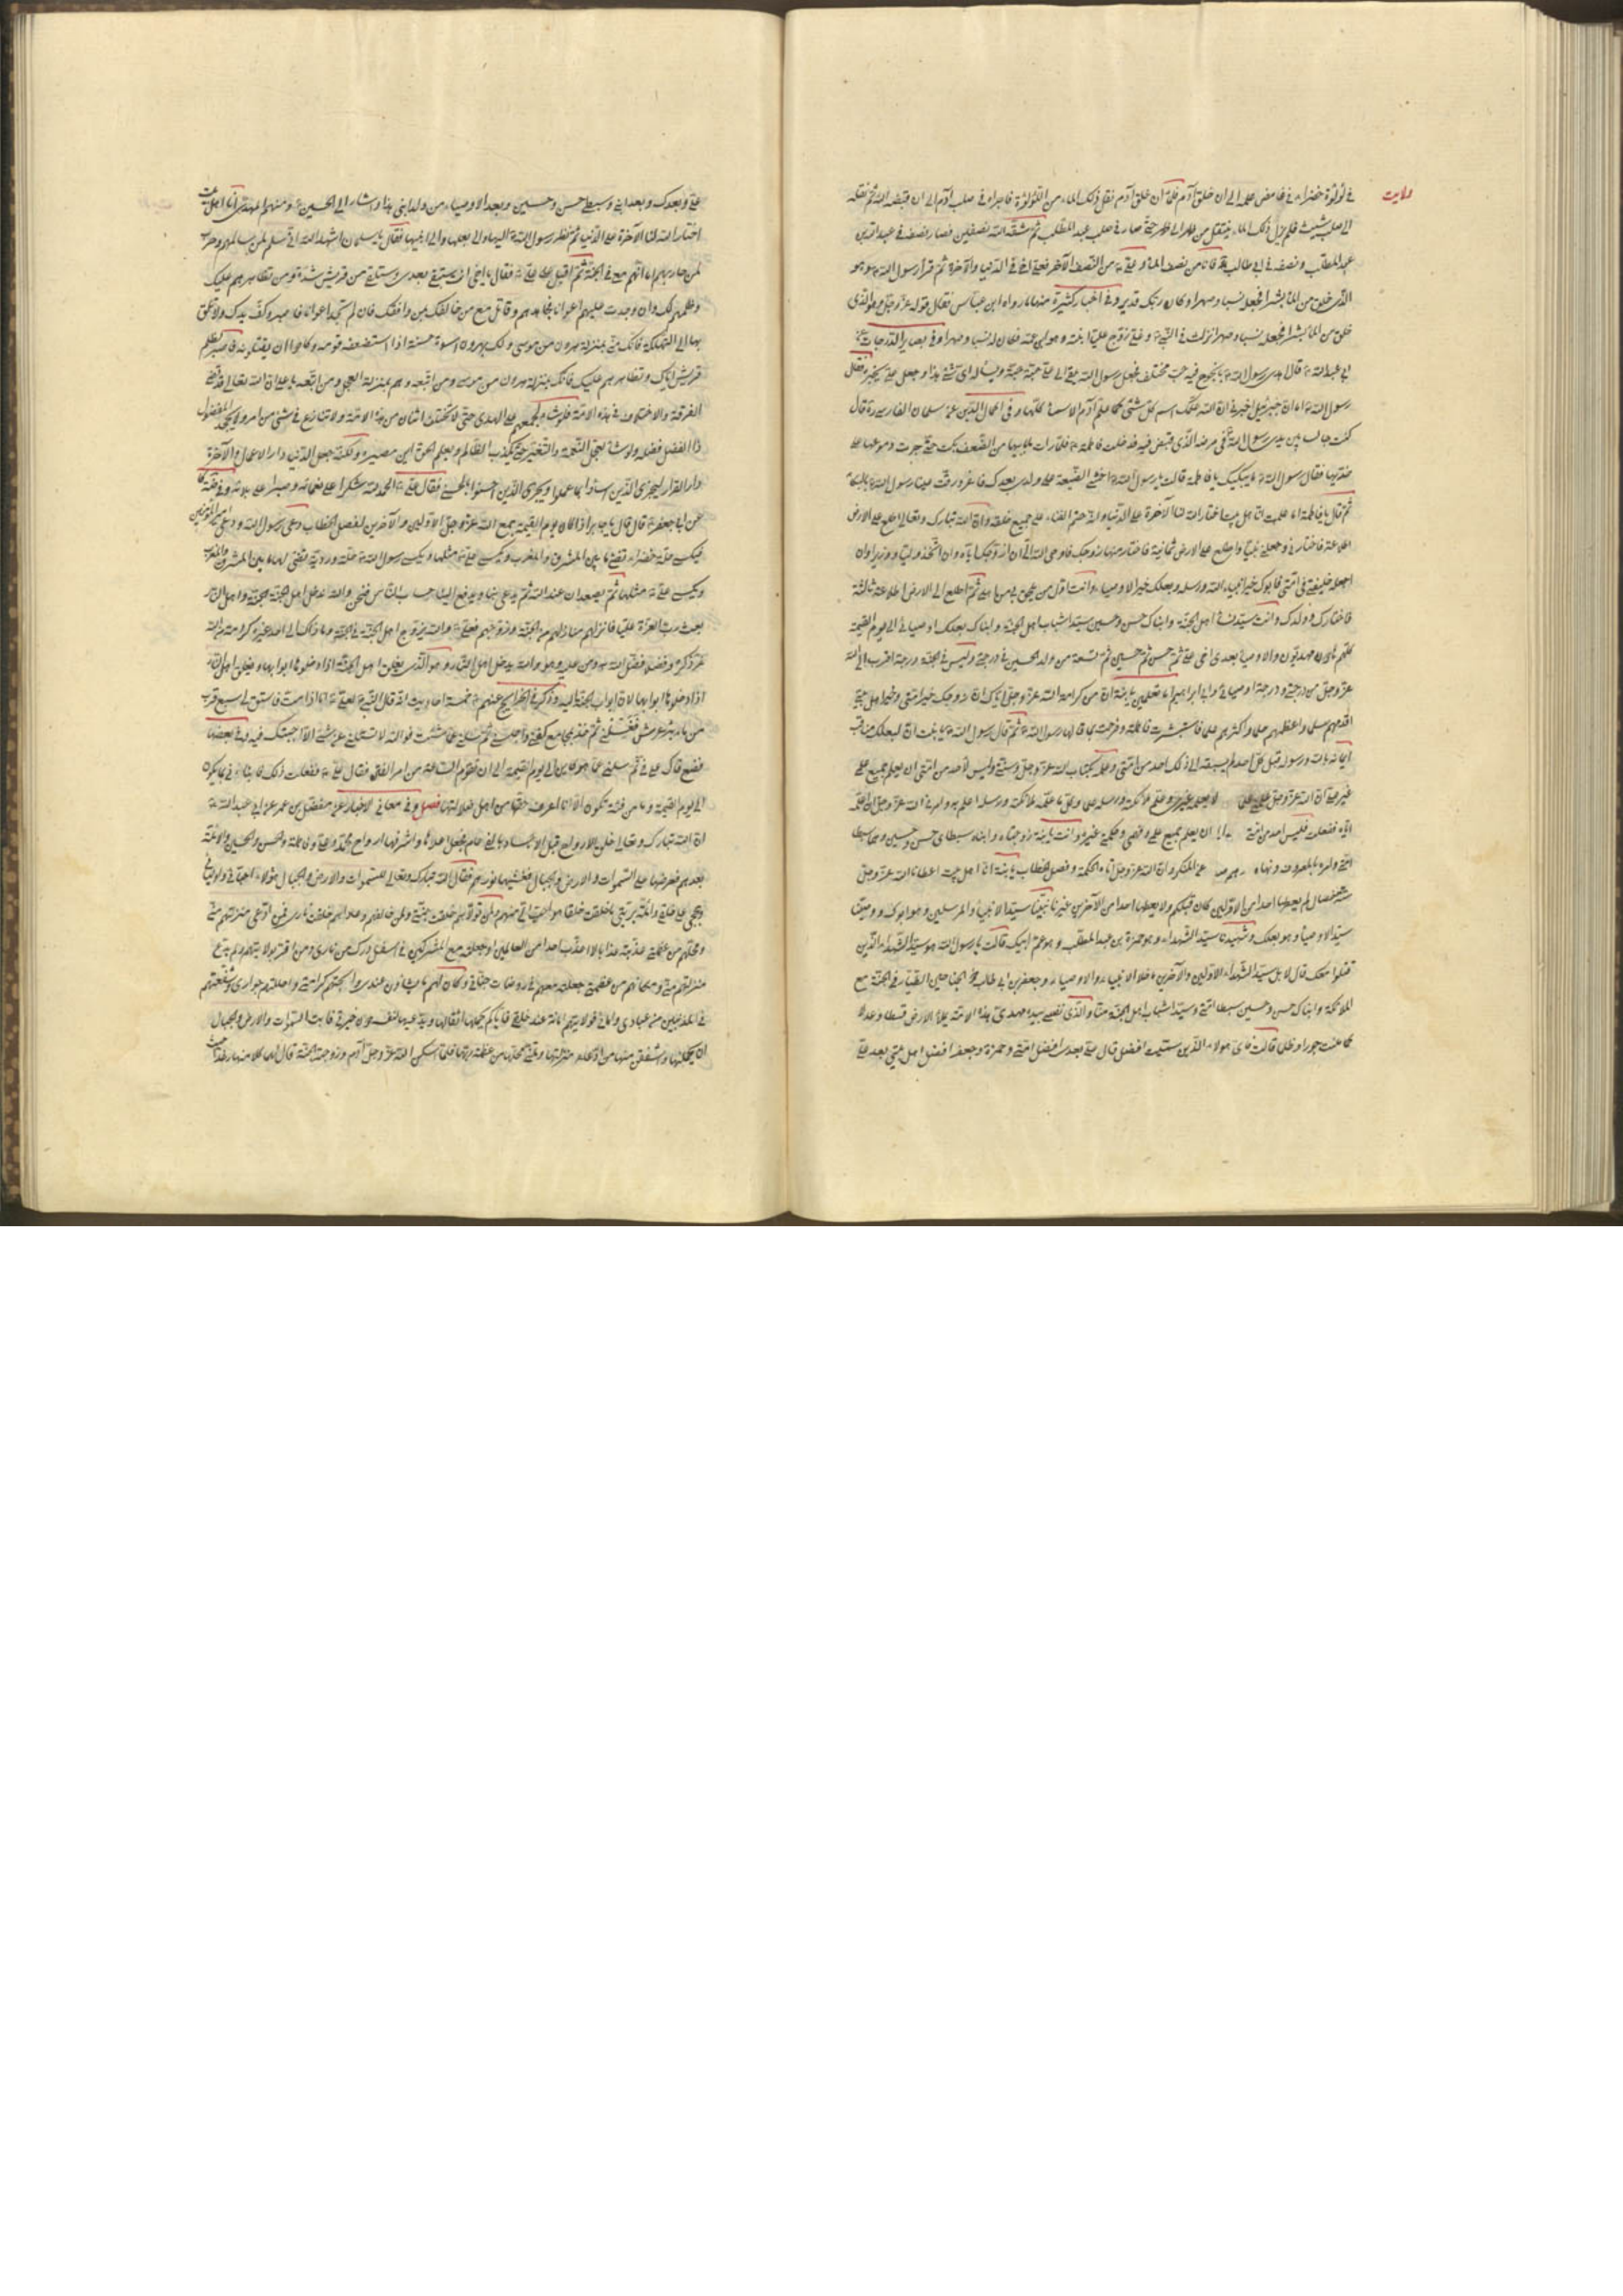 ولایت
فی لؤلؤة خضراء فی غامض علمه الی ان خلق آدم فلمّا ان خلق آدم نقل ذلک الماء من اللؤلؤة فاجراه فی صلب آدم الی ان قبضه اللّه ثمّ نقله
الی صلب شیث فلم یزل ذلک الماء ینتقل من ظهر الی ظهر حتّی صار فی صلب عبد المطّلب ثمّ شقّه اللّه نصفین فصار نصفه فی عبد اللّه بن
عبد المطّلب و نصفه فی ابی طالب فانا من نصف الماء و علیّ من النّصف الآخر فعلیّ اخی فی الدّنیا و الآخرة ثمّ قرأ رسول اللّه و هو
الّذی خلق من الماء بشرا فجعله نسبا و صهرا و کان ربّک قدیرا و فی اخبار کثیرة منها ما رواه ابن عبّاس فقال قوله عزّ و جلّ و هو الّذی
خلق من الماء بشرا فجعله نسبا و صهرا نزلت فی النّبی و علیّ زوّج علیّا ابنته و هو ابن عمّه فکان له نسبا و صهرا و فی بصایر الدّرجات عن
ابی عبد اللّه قال اهدی رسول اللّه دالجوج فیه حبّ مختلف فجعل رسول اللّه یلقی الی علیّ حبّة حبّة و یسأله ای شیء هذا و جعل علیّ یخبره فقال
رسول اللّه اما انّ جبرئیل اخبرنی انّ اللّه علّمک اسم کلّ شیء کما علّم آدم الاسماء کلّها و فی اکمال الدّین عن سلمان الفارسی ره قال
کنت جالسا بین یدی رسول اللّه فی مرضه الّذی قبض فیه فدخلت فاطمة فلمّا رأت ما بابیها من الضّعف بکت حتّی جرت دموعها علی
خدّیها فقال رسول اللّه ما یبکیک یا فاطمة قالت یا رسول اللّه اخشی الضّیعة علی ولدی بعدک فاغرورقت عینا رسول اللّه بالبکاء
ثمّ قال یا فاطمة اما علمت انّا اهل بیت اختار اللّه لنا الآخرة علی الدّنیا و انّه حتم الفناء علی جمیع خلقه و انّ اللّه تبارک و تعالی اطّلع علی الارض
اطلاعة فاختارنی و جعلنی نبیّا و اطّلع علی الارض ثانیة فاختار منها زوجک فاوحی اللّه الیّ ان ازوّجک ایّاه و ان اتّخذه ولیّا و وزیرا و ان
اجعله خلیفتی فی امّتی فابوک خیر انبیاء اللّه و رسله و بعلک خیر الاوصیاء و انت اوّل من یلحق بی من اهلی ثمّ اطّلع الی الارض اطلاعة ثالثة
فاختارک و ولدک و انت سیّدة نساء اهل الجنّة و ابناک حسن و حسین سیّدا شباب اهل الجنّة و ابناک بعلک اوصیائی الی یوم القیمة
کلّهم هادون مهدیّون و الاوصیاء بعدی اخی علیّ ثمّ حسن ثمّ حسین ثمّ تسعة من ولد الحسین فی درجتی و لیس فی الجنّة درجة اقرب الی اللّه
عزّ و جلّ من درجتی و درجة اوصیائی و ابی ابراهیم اما تعلمین یا بنیّة انّ من کرامة اللّه عزّ و جلّ ایّاک ان زوّجک خیر امّتی و خیر اهل بیتی
اقدمهم سلما و اعظمهم حلما و اکثرهم علما فاستبشرت فاطمة و فرحت بما قال لها رسول اللّه ثمّ قال رسول اللّه یا بنیّة انّ لبعلک مناقب
ایمانه باللّه و رسوله قبل کلّ احد لم یسبقه الی ذلک احد من امّتی و علمه بکتاب اللّه عزّ و جلّ و سنّتی و لیس لاحد من امّتی ان یعلم جمیع علمی
غیر علیّ انّ اللّه عزّ و جلّ علّمنی علما لا یعلمه غیری و علّم ملائکته و رسله علما و کلّ ما علّمه ملائکته و رسله اعلم به و امرنی اللّه عزّ و جلّ ان اعلّمه
ایّاه ففعلت فلیس احد من امّتی ان یعلم جمیع علمی و فهمی و حکمتی غیره و انت یا بنیّة زوجته و ابناه سبطای حسن و حسین و هما سبطا
امّتی و امره بالمعروف و نهاه عن المنکر و انّ اللّه عزّ و جلّ آتاه الحکمة و فصل الخطاب یا بنیّة انّا اهل بیت اعطانا اللّه عزّ و جلّ
ستّ خصال لم یعطها احدا من الاوّلین کان قبلکم و لا یعطیها احدا من الآخرین غیرنا نبیّنا سیّد الانبیاء و المرسلین و هو ابوک و وصیّنا
سیّد الاوصیاء و هو بعلک و شهیدنا سیّد الشّهداء و هو حمزة بن عبد المطّلب و هو عمّ ابیک قالت یا رسول اللّه هو سیّد الشّهداء الّذین
قتلوا معک قال لا بل سیّد الشّهداء الاوّلین و الآخرین ما خلا الانبیاء و الاوصیاء و جعفر بن ابی طالب ذو الجناحین الطّیّار فی الجنّة مع
الملائکة و ابناک حسن و حسین سبطا امّتی و سیّدا شباب اهل الجنّة و منّا و الّذی نفسی بیده مهدیّ هذه الامّة یملأ الارض قسطا و عدلا
کما ملئت جورا و ظلما قالت فایّ هؤلاء الّذین سمّیت افضل قال علیّ بعدی افضل امّتی و حمزة و جعفر افضل اهل بیتی بعد علیّ
علیّ و بعدک و بعد ابنیّ و سبطیّ حسن و حسین و بعد الاوصیاء من ولد ابنی هذا و اشار الی الحسین و منهم المهدی انّا اهل بیت
اختار اللّه لنا الآخرة علی الدّنیا ثمّ نظر رسول اللّه الیها و الی بعلها و الی ابنیها فقال یا سلمان اشهد اللّه انّی سلم لمن سالمهم و حرب
لمن حاربهم اما انّهم معی فی الجنّة ثمّ اقبل علی علیّ فقال یا اخی انت ستبقی بعدی و ستلقی من قریش شدّة و من تظاهرهم علیک
و ظلمهم لک فان وجدت علیهم اعوانا فجاهدهم و قاتل من خالفک بمن وافقک فان لم تجد اعوانا فاصبر و کفّ یدک و لا تلق
بها الی التّهلکة فانّک منّی بمنزلة هرون من موسی و لک بهرون اسوة حسنة اذ استضعفه قومه و کادوا ان یقتلونه فاصبر لظلم
قریش ایّاک و تظاهرهم علیک فانّک بمنزلة هرون من موسی و من اتّبعه و هم بمنزلة العجل و من اتّبعه یا علیّ انّ اللّه تعالی قد قضی
الفرقة و الاختلاف فی هذه الامّة فلو شاء لجمعهم علی الهدی حتّی لا یختلف اثنان من هذه الامّة و لا یتنازع فی شیء من امره و لا یجحد المفضول
ذا الفضل فضله و لو شاء لعجّل النّقمة و التّغییر حتّی یکذّب الظّالم و یعلم الحقّ این مصیره و لکنّه جعل الدّنیا دار الاعمال و الآخرة
دار القرار لیجزی الّذین اساؤا بما عملوا و یجزی الّذین احسنوا بالحسنی فقال علیّ الحمد للّه شکرا علی نعمائه و صبرا علی بلائه و فی
عن ابی جعفر قال قال یا جابر اذا کان یوم القیمة جمع اللّه عزّ و جلّ الاوّلین و الآخرین لفصل الخطاب دعی رسول اللّه و دعی امیر المؤمنین
فیکسی حلّة خضراء تضیء ما بین المشرق و المغرب و یکسی علیّ مثلها و یکسی رسول اللّه حلّة وردیّة تضیء لها ما بین المشرق و المغرب
و یکسی علیّ مثلها ثمّ یصعدان عند اللّه ثمّ یدعی بنا و یدفع الینا حساب النّاس فنحن و اللّه ندخل اهل الجنّة الجنّة و اهل النّار
بعث ربّ العزّة علیّا فانزلهم منازلهم من الجنّة و زوّجهم فعلیّ و اللّه یزوّج اهل الجنّة فی الجنّة و ما ذلک الی احد غیره کرامة من اللّه
عزّ ذکره و فضلا فضّله اللّه به و منّ علیه و هو و اللّه یدخل اهل النّار و هو الّذی یغلق اهل الجنّة اذا دخلوها ابوابها و یغلق اهل النّار
اذا دخلوها ابوابها لانّ ابواب الجنّة الیه و ذکر فی الخرایج عنهم خمسة احادیث انّه قال النّبی لعلیّ اذا متّ فاستق لی سبع قرب
من ماء بئر غرس فغسّلنی ثمّ خذ بمجامع کفنی و اجلسنی ثمّ سلنی عمّا شئت فو اللّه لا تسألنی عن شیء الّا اجبتک فیه و فی بعضها
فضع فاک علی فیّ ثمّ سلنی عمّا هو کاین الی یوم القیمة الی ان تقوم السّاعة من امر الفتن فقال علیّ ففعلت ذلک فانبأنی بما یکون
الی یوم القیمة و ما من فئة تکون الّا انا اعرف حقّها من اهل ضلالتها فصل و فی معانی الاخبار عن مفضّل بن عمر عن ابی عبد اللّه
انّ اللّه تبارک و تعالی خلق الارواح قبل الاجساد بالفی عام فجعل اعلاها و اشرفها ارواح محمّد و علیّ و فاطمة و الحسن و الحسین و الائمّة
بعدهم فعرضها علی السّموات و الارض و الجبال فغشیها نورهم فقال اللّه تبارک و تعالی للسّموات و الارض و الجبال هؤلاء احبّائی و اولیائی
و حججی علی خلقی و ائمّة بریّتی ما خلقت خلقا هو احبّ الیّ منهم و لمن تولّاهم خلقت جنّتی و لمن خالفهم و عاداهم خلقت ناری فمن ادّعی منزلتهم منّی
و محلّهم من عظمتی عذّبته عذابا لا اعذّبه احدا من العالمین و جعلته مع المشرکین فی اسفل درک من ناری و من اقرّ بولایتهم و لم یدّع
منزلتهم منّی و مکانهم من عظمتی جعلته معهم فی روضات جنّاتی و کان لهم ما یشاؤن عندی و ابحتهم کرامتی و احللتهم جواری و شفّعتهم
فی المذنبین من عبادی و امائی فولایتهم امانة عند خلقی فایّکم یحملها باثقالها و یدّعیها لنفسه دون خیرتی فابت السّموات و الارض و الجبال
ان یحملنها و اشفقن منها من ادّعاء منزلتها و تمنّی محلّها من عظمة ربّها فلمّا اسکن اللّه عزّ و جلّ آدم و زوجته الجنّة قال لهما کلا منها رغدا حیث